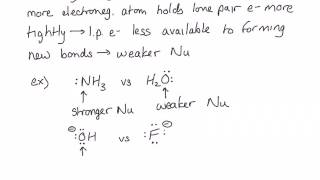 more electroneg. atom holds lone pair e- more
tightly → l.p. e- less available to forming
new bonds → weaker Nu
ex) :NH₃ vs H₂O:
stronger Nu weaker Nu
⊖:OH vs :F:⊖